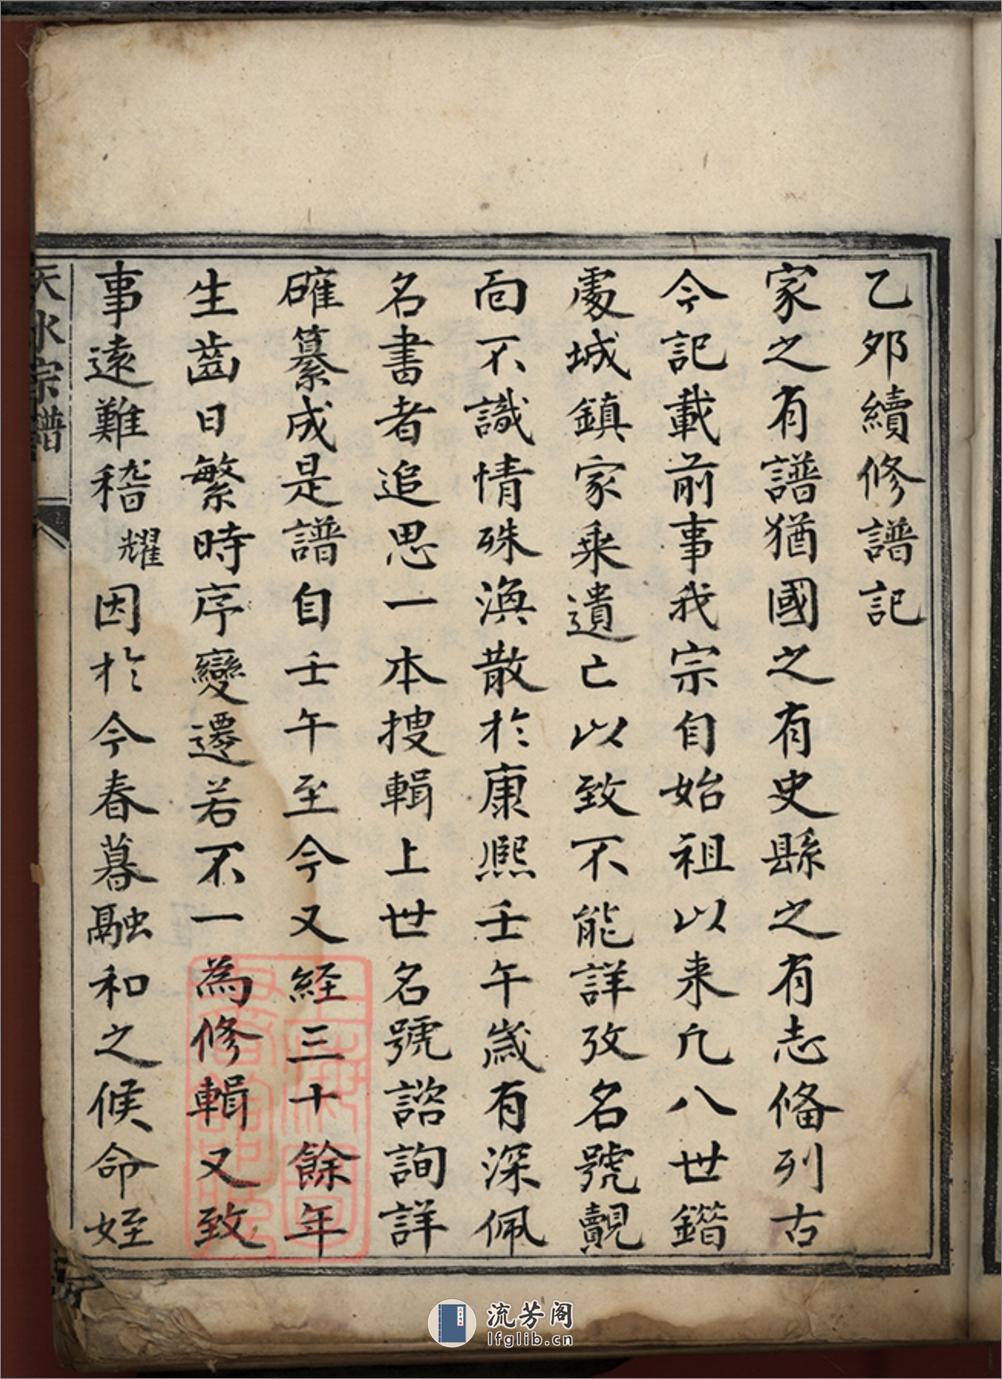 乙夘續修譜記
家之有譜猶國之有史縣之有志俻列古
今記載前事我宗自始祖以来凢八世鐕
處城鎮家乘遺亡以致不能詳攷名號覿
靣不識情殊渙散於康熙壬午歲有深佩
名書者追思一本搜輯上世名號諮詢詳
確纂成是譜自壬午至今又経三十餘年
生齒日繁時序變遷若不一為修輯又致
事遠難稽耀因於今春暮融和之候命姪
天水宗譜
流芳阁
lfglib.cn